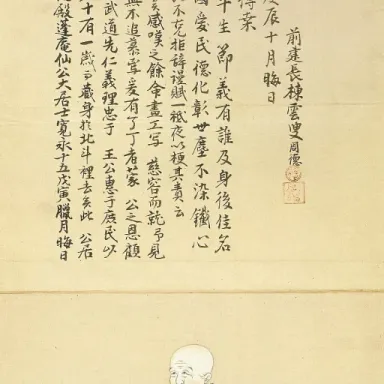 殿蓬庵仙公大居士寛永十五戊寅臘月晦日
十有一歳而藏身於北斗裡去矣此 公居
武道先仁義理忠于 王公惠于庶民以
無不追慕爰有了者蒙 公之恩顧
感嘆之餘命畫工写 慈容而 予見
不克拒辞謾賦一祇夜以梗其責云
國愛民德化彰世塵不染鐵心
平生節義有誰及身後佳名
葉
辰十月晦日
前建長棟雲叟周德